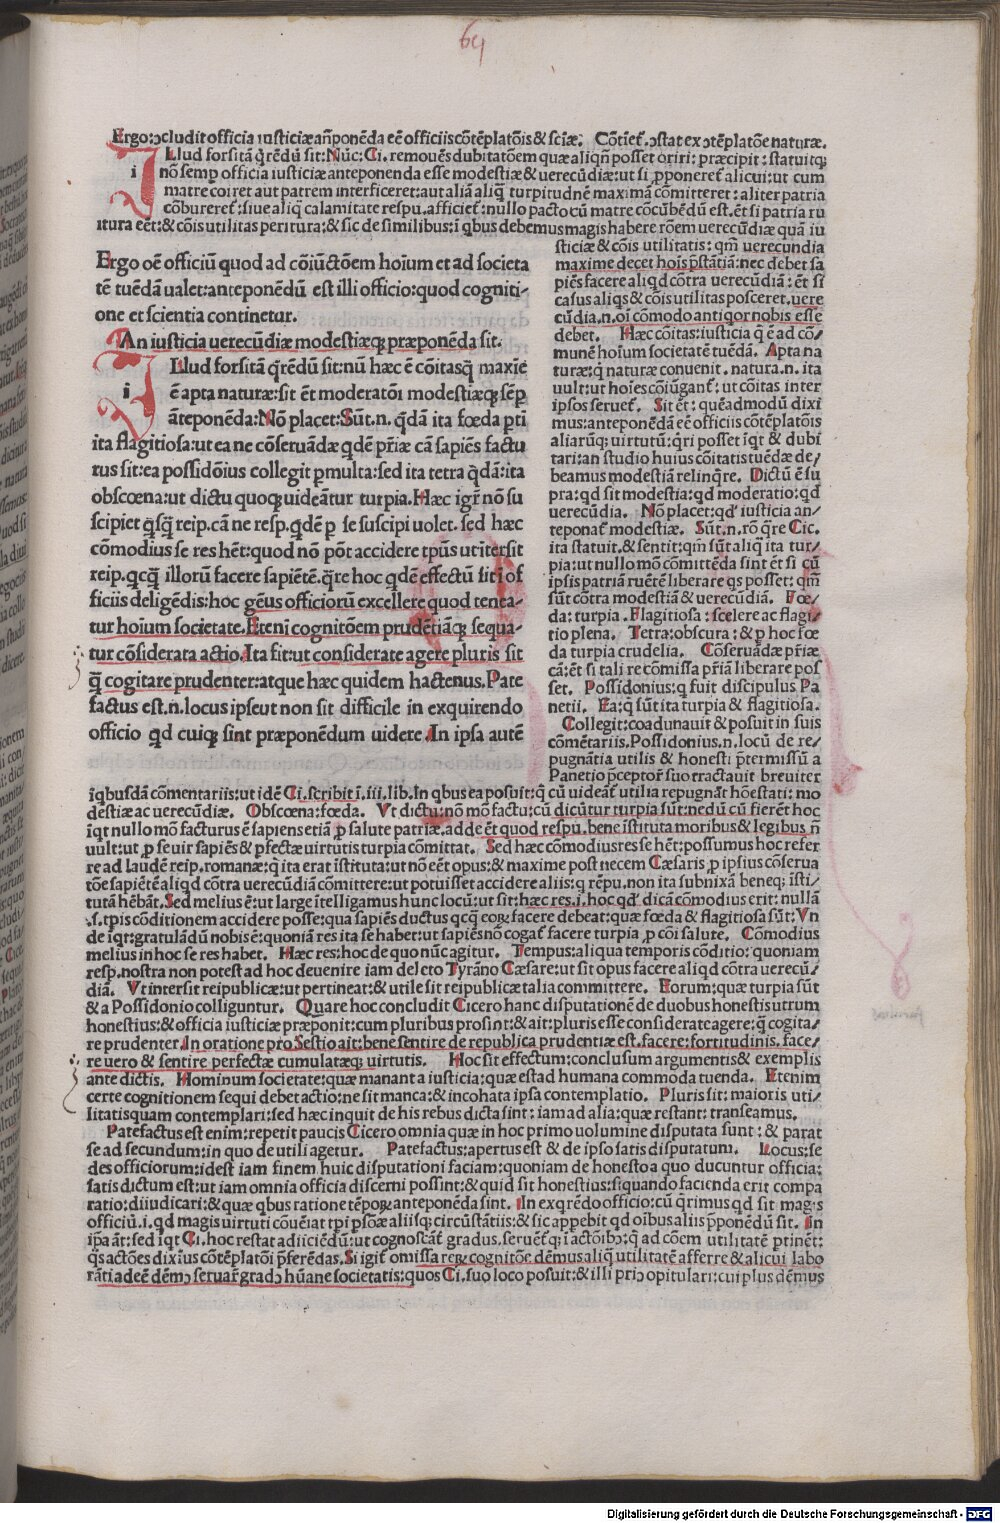 64
Ergo: ↄcludit officia iusticiæ añponēda eē officiis cōtēplatōis & sciæ. Cōtiet᷑. ↄstat ex ↄtēplatōe naturæ.
ILlud forsitā q̄rēdū sit: Nūc: Ci. remouēs dubitatōem quæ aliqñ posset oriri: præcipit: statuitq;
i nō semp officia iusticiæ anteponenda esse modestiæ & uerecūdiæ: ut si ꝓponeret᷑ alicui: ut cum
matre coiret aut patrem interficeret: aut aliā aliq̄ turpitudnē maximā cōmitteret: aliter patria
cōbureret᷑: siue aliq̄ calamitate respu. afficiet᷑: nullo pacto cū matre cōcūbēdū est. ēt si patria ru
itura eēt: & cōis utilitas peritura: & sic de similibus: ī qbus debemus magis habere rōem uerecūdiæ quā iu
sticiæ & cōis utilitatis: qm̄ uerecundia
maxime decet hoīs p̄stātiā: nec debet sa
piēs facere aliqd cōtra uerecūdiā: ēt si
casus aliqs & cōis utilitas posceret. uere
cūdia. n. oī cōmodo antiqor nobis esse
debet. Hæc cōitas: iusticia q̄ ē ad cō/
munē hoīum societatē tuēdā. Apta na
turæ: q̄ naturæ conuenit. natura. n. ita
uult: ut hoīes cōiūgant᷑: ut cōitas inter
ipsos seruet᷑. Sit ēt: quēadmodū dixi
mus: anteponēdā eē officiis cōtēplatōis
aliarūq; uirtutū: q̄ri posset iqt & dubi
tari: an studio huius cōitatis tuēdæ de/
beamus modestiā relinq̄re. Dictū ē su
pra: qd sit modestia: qd moderatio: qd
uerecūdia. Nō placet: qd' iusticia an/
teponat᷑ modestiæ. Sūt. n. rō q̄re Cic.
ita statuit. & sentit: qm̄ sūt aliq̄ ita tur/
pia: ut nullo mō cōmittēda sint ēt si cū
ipsis patriā ruētē liberare qs posset: qm̄
sūt cōtra modestiā & uerecūdiā. Fœ/
da: turpia. Flagitiosa: scelere ac flagi/
tio plena. Tetra: obscura: & ꝑ hoc fœ
da turpia crudelia. Cōseruādæ pr̄iæ
cā: ēt si tali re cōmissa pr̄iā liberare pos
set. Possidonius: q fuit discipulus Pa
netii. Ea: q̄ sūt ita turpia & flagitiosa.
Collegit: coadunauit & posuit in suis
cōmētariis. Possidonius. n. locū de re/
pugnātia utilis & honesti p̄termissū a
Panetio p̄ceptor̄ suo tractauit breuiter
Ergo oē officiū quod ad cōiūctōem hoīum et ad societa
tē tuēdā ualet: anteponēdū est illi officio: quod cogniti-
one et scientia continetur.
An iusticia uerecūdiæ modestiæq; præponēda sit.
ILlud forsitā q̄rēdū sit: nū hæc ē cōitasq̄ maxīe
i ē apta naturæ: sit ēt moderatōi modestiæq; sēp
āteponēda: Nō placet: Sūt. n. q̄dā ita fœda ptī
ita flagitiosa: ut ea ne cōseruādæ qdē pr̄iæ cā sapiēs factu
rus sit: ea possidōius collegit ꝑmulta: sed ita tetra q̄dā: ita
obscœna: ut dictu quoq; uideātur turpia. Hæc igr̄ nō su
scipiet q̄sq̄ reip. cā ne resp. qdē ꝑ se suscipi uolet. sed hæc
cōmodius se res hēt: quod nō pōt accidere tp̄us ut ītersit
reip. qcq̄ illorū facere sapiētē. q̄re hoc qdē effectū sit ī of
ficiis deligēdis: hoc gēus officiorū excellere quod tenea-
tur hoīum societate. Etenī cognitōem prudētiāq; sequa-
tur cōsiderata actio. Ita fit: ut considerate agere pluris sit
q̄ cogitare prudenter: atque hæc quidem hactenus. Pate
factus est. n. locus ipse ut non sit difficile in exquirendo
officio qd cuiq; sint præponēdum uidere. In ipsa autē
iqbusdā cōmentariis: ut idē Ci. scribit ī. iii. lib. In qbus ea posuit: q̄ cū uideāt᷑ utilia repugnāt hōestati: mo
destiæ ac uerecūdiæ. Obscœna: fœda. Vt dictu: nō mō factu: cū dicūtur turpia sūt: nedū cū fierēt hoc
iqt nullo mō facturus ē sapiens etiā ꝓ salute patriæ. adde ēt quod respu. bene īstituta moribus & legibus ñ
uult: ut ꝓ se uir sapiēs & ꝑfectæ uirtutis turpia cōmittat. Sed hæc cōmodius res se hēt: possumus hoc refer
re ad laudē reip. romanæ: q̄ ita erat istituta: ut nō eēt opus: & maxime post necem Cæsaris ꝓ ipsius cōserua
tōe sapiētē aliqd cōtra uerecūdiā cōmittere: ut potuisset accidere aliis: q rēpu. non ita subnixā beneq; īsti/
tutā hēbāt. Sed melius ē: ut large ītelligamus hunc locū: ut sit: hæc res. i. hoc qd' dicā cōmodius erit: nullā
.s. tp̄is cōditionem accidere posse: qua sapiēs ductus qcq̄ eoꝝ facere debeat: quæ fœda & flagitiosa sūt: Vn
de iqt: gratulādū nobis ē: quoniā res ita se habet: ut sapiēs nō cogat᷑ facere turpia ꝓ cōi salute. Cōmodius
melius in hoc se res habet. Hæc res: hoc de quo nūc agitur. Tempus: aliqua temporis cōditio: quoniam
resp. nostra non potest ad hoc deuenire iam deleto Tyrāno Cæsare: ut sit opus facere aliqd cōtra uerecū/
diā. Vt intersit reipublicæ: ut pertineat: & utile sit reipublicæ talia committere. Eorum: quæ turpia sūt
& a Possidonio colliguntur. Quare hoc concludit Cicero hanc disputationē de duobus honestis utrum
honestius: & officia iusticiæ præponit: cum pluribus prosint: & ait: pluris esse considerate agere: q̄ cogita/
re prudenter. In oratione pro Sestio ait: bene sentire de republica prudentiæ est. facere: fortitudinis. face/
re uero & sentire perfectæ cumulatæq; uirtutis. Hoc sit effectum: conclusum argumentis & exemplis
ante dictis. Hominum societate: quæ manant a iusticia: quæ est ad humana commoda tuenda. Etenim
certe cognitionem sequi debet actio: ne sit manca: & incohata ipsa contemplatio. Pluris sit: maioris uti/
litatis quam contemplari: sed hæc inquit de his rebus dicta sint: iam ad alia: quæ restant: transeamus.
Patefactus est enim: repetit paucis Cicero omnia quæ in hoc primo uolumine disputata sunt: & parat
se ad secundum: in quo de utili agetur. Patefactus: apertus est & de ipso satis disputatum. Locus: se
des officiorum: idest iam finem huic disputationi faciam: quoniam de honesto a quo ducuntur officia:
satis dictum est: ut iam omnia officia discerni possint: & quid sit honestius: si quando facienda erit compa
ratio: diiudicari: & quæ qbus ratione tēpoꝝ anteponēda sint. In exq̄rēdo officio: cū q̄rimus qd sit magis
officiū. i. qd magis uirtuti cōuēiat tp̄i p̄sōæ aliisq; circūstātiis: & sic appebit qd oībus aliis p̄ponēdū sit. In
ipa āt: sed iqt Ci. hoc restat adiiciēdū: ut cognoscāt᷑ gradus. seruēt᷑q; ī actōibꝰ: q̄ ad cōem utilitatē ptinēt:
q̄s actōes diximus cōtēplatōi p̄ferēdas. Si igit᷑ omissa reꝝ cognitōe dēmus aliq̄ utilitatē afferre & alicui labo
rāti adeē dēmꝰ seruar̄ gradꝰ hūane societatis: quos Ci. suo loco posuit: & illi priꝰ opitulari: cui plus dēmus
Digitalisierung gefördert durch die Deutsche Forschungsgemeinschaft - DFG